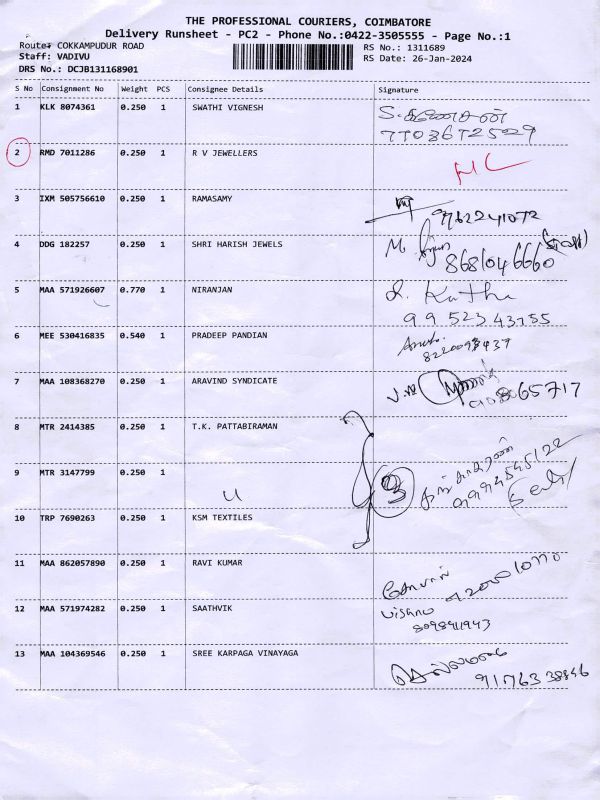 THE PROFESSIONAL COURIERS, COIMBATORE
Delivery Runsheet - PC2 - Phone No.:0422-3505555 - Page No.:1
Route: COKKAMPUDUR ROAD
Staff: VADIVU
DRS No.: DCJB131168901
RS No.: 1311689
RS Date: 26-Jan-2024
S No Consignment No Weight PCS Consignee Details Signature
1 KLK 8074361 0.250 1 SWATHI VIGNESH
2 RMD 7011286 0.250 1 R V JEWELLERS
3 IXM 505756610 0.250 1 RAMASAMY 9762241072
4 DDG 182257 0.250 1 SHRI HARISH JEWELS 8681046660
5 MAA 571926607 0.770 1 NIRANJAN
99523 43755
6 MEE 530416835 0.540 1 PRADEEP PANDIAN
7 MAA 108368270 0.250 1 ARAVIND SYNDICATE
8 MTR 2414385 0.250 1 T.K. PATTABIRAMAN
9 MTR 3147799 0.250 1 9994545122
10 TRP 7690263 0.250 1 KSM TEXTILES
11 MAA 862057890 0.250 1 RAVI KUMAR
12 MAA 571974282 0.250 1 SAATHVIK
13 MAA 104369546 0.250 1 SREE KARPAGA VINAYAGA